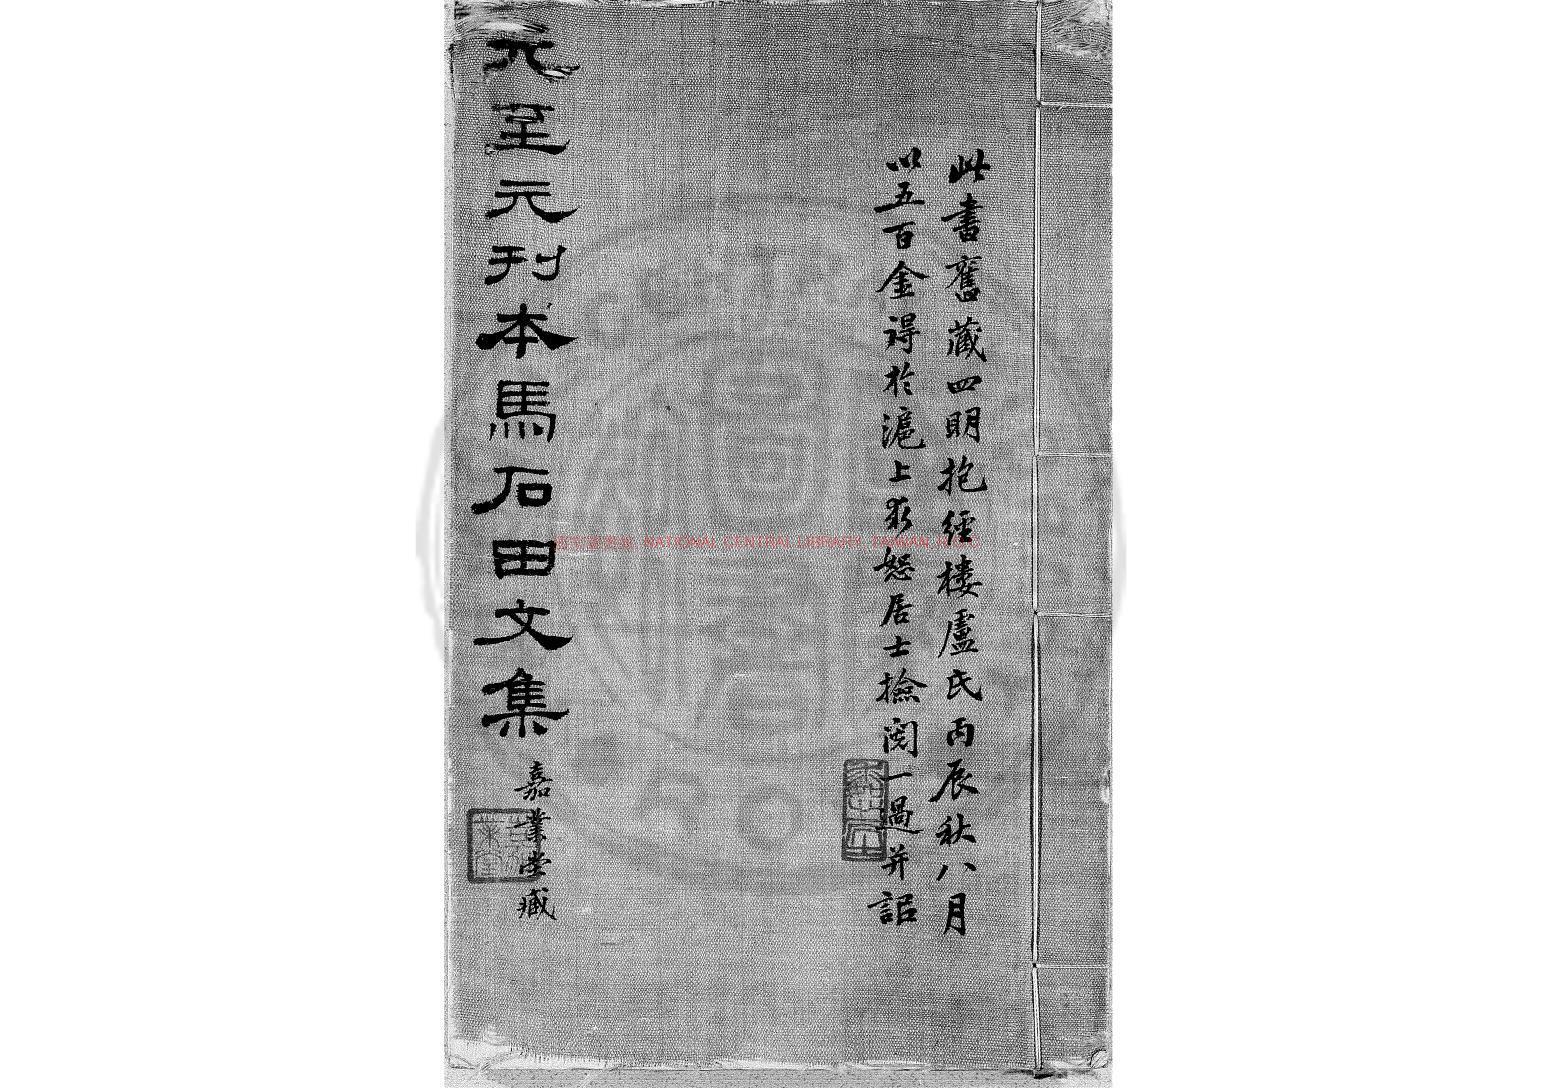 此書舊藏四明抱經樓盧氏丙辰秋八月
以五百金得於滬上求恕居士撿閱一過并記
元至元刊本馬石田文集
嘉業堂藏
NATIONAL CENTRAL LIBRARY, TAIWAN